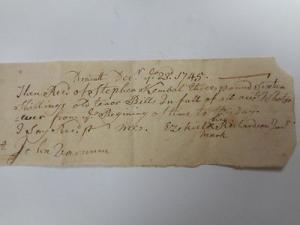 Dracutt Decr ye 28: 1745
Then Recd of Stephen Kembal three pound Sixteen
Shillings old tenor Bills In full of all
ever from ye Begining of time to this Day
I Say Recd pr me Ezekiel Richardson
his
mark
John Varnum